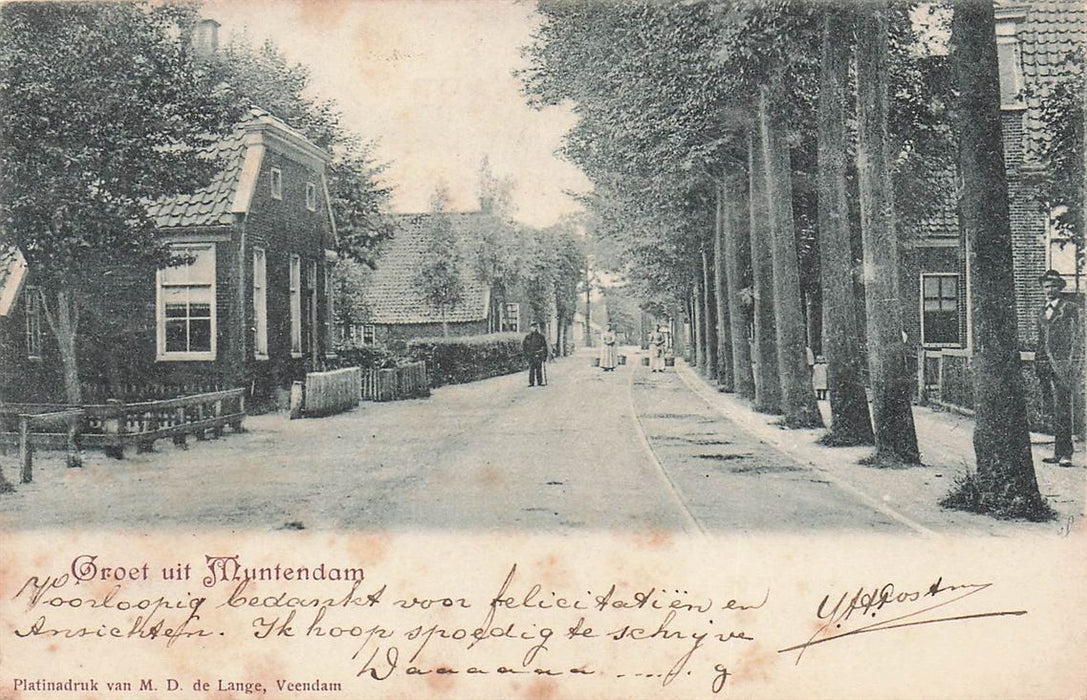 Groet uit Muntendam
Voorloopig bedankt voor felicitatiën en
Ansichten. Ik hoop spoedig te schrijve
Daaaaaa.....g
Platinadruk van M. D. de Lange, Veendam